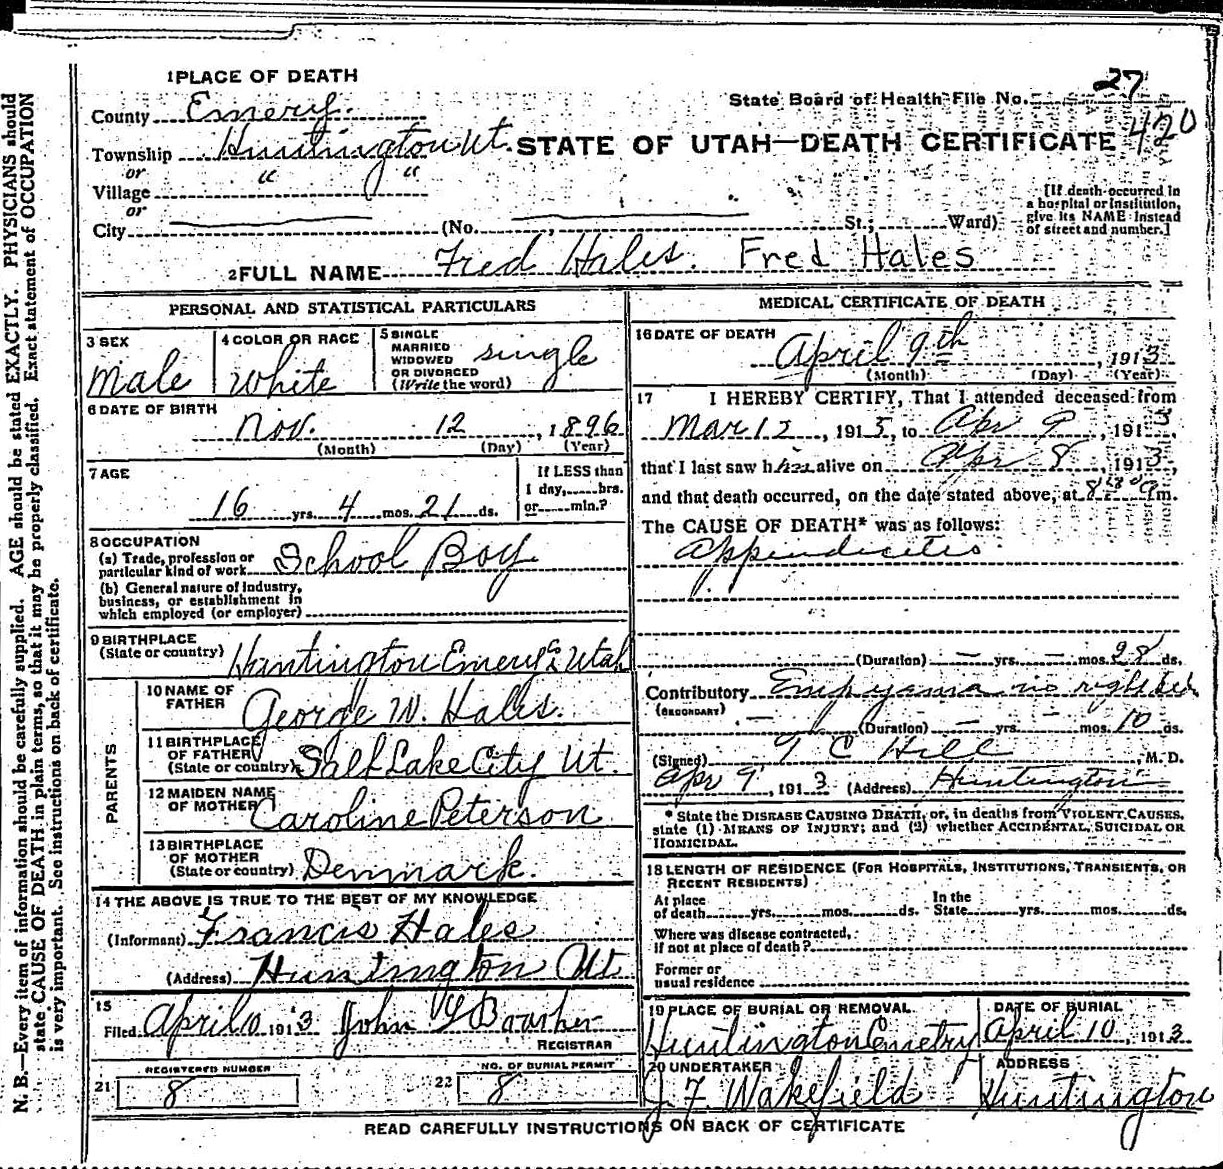 1 PLACE OF DEATH
27
State Board of Health File No.
County Emery.
Township Huntington Ut. STATE OF UTAH—DEATH CERTIFICATE 420
or
Village " "
or
City (No. , St.; Ward)
[If death occurred in
a hospital or institution,
give its NAME instead
of street and number.]
2 FULL NAME Fred Hales. Fred Hales
PERSONAL AND STATISTICAL PARTICULARS
3 SEX
Male
4 COLOR OR RACE
White
5 SINGLE
MARRIED
WIDOWED
OR DIVORCED
(Write the word)
single
6 DATE OF BIRTH
Nov. 12, 1896
(Month) (Day) (Year)
7 AGE
16 yrs. 4 mos. 21 ds.
If LESS than
1 day, hrs.
or min.?
8 OCCUPATION
(a) Trade, profession or
particular kind of work School Boy
(b) General nature of industry,
business, or establishment in
which employed (or employer)
9 BIRTHPLACE
(State or country) Huntington Emery Co Utah
PARENTS
10 NAME OF
FATHER George W. Hales.
11 BIRTHPLACE
OF FATHER
(State or country) Salt Lake City Ut.
12 MAIDEN NAME
OF MOTHER Caroline Peterson
13 BIRTHPLACE
OF MOTHER
(State or country) Denmark.
14 THE ABOVE IS TRUE TO THE BEST OF MY KNOWLEDGE
(Informant) Francis Hales
(Address) Huntington Ut
15
Filed April 10 1913 John
REGISTRAR
REGISTERED NUMBER
21 8
NO. OF BURIAL PERMIT
22 8
MEDICAL CERTIFICATE OF DEATH
16 DATE OF DEATH
April 9th, 1913
(Month) (Day) (Year)
17 I HEREBY CERTIFY, That I attended deceased from
Mar 12, 1913, to Apr 9, 1913,
that I last saw him alive on Apr 8, 1913,
and that death occurred, on the date stated above, at 8 m.
The CAUSE OF DEATH* was as follows:
Appendicites
(Duration) — yrs. — mos. 28 ds.
Contributory Empyama
(SECONDARY)
(Duration) — yrs. mos. 10 ds.
(Signed) C Hill, M. D.
Apr 9, 1913 (Address) Huntington
* State the DISEASE CAUSING DEATH, or, in deaths from VIOLENT CAUSES,
state (1) MEANS OF INJURY; and (2) whether ACCIDENTAL, SUICIDAL OR
HOMICIDAL.
18 LENGTH OF RESIDENCE (FOR HOSPITALS, INSTITUTIONS, TRANSIENTS, OR
RECENT RESIDENTS)
At place
of death yrs. mos. ds.
In the
State yrs. mos. ds.
Where was disease contracted,
if not at place of death?
Former or
usual residence
19 PLACE OF BURIAL OR REMOVAL
Huntington Cemetry
DATE OF BURIAL
April 10, 1913
20 UNDERTAKER
J. F. Wakefield
ADDRESS
Huntington
READ CAREFULLY INSTRUCTIONS ON BACK OF CERTIFICATE
N. B.—Every item of information should be carefully supplied. AGE should be stated EXACTLY. PHYSICIANS should
state CAUSE OF DEATH in plain terms, so that it may be properly classified. Exact statement of OCCUPATION
is very important. See instructions on back of certificate.